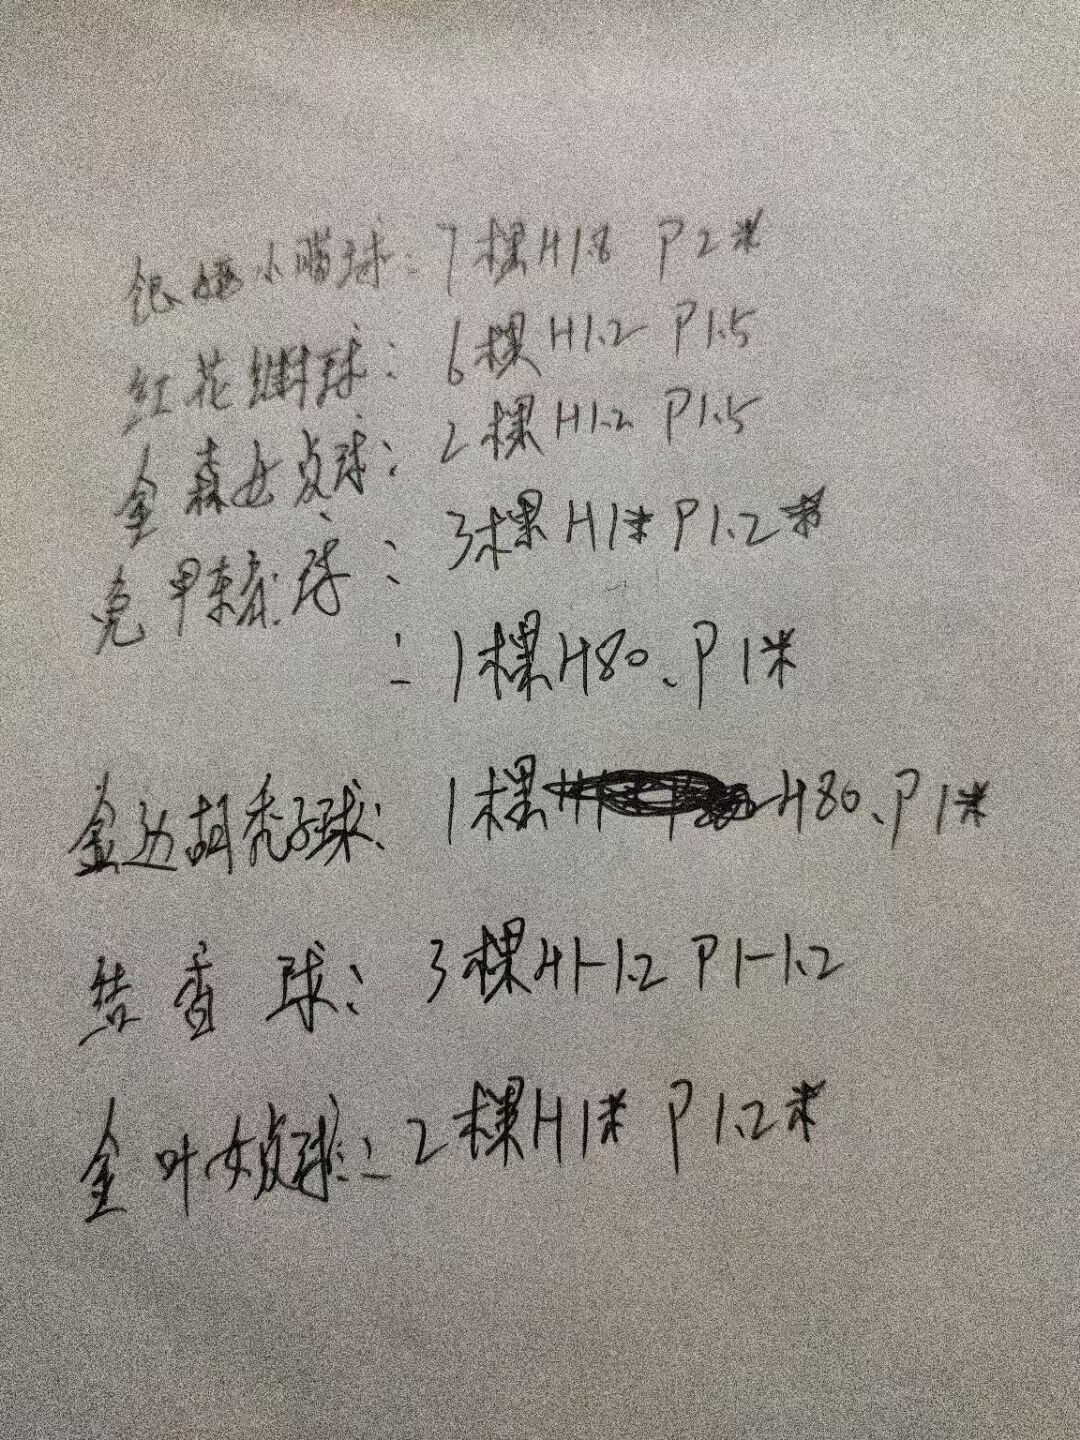 银姬小腊球：7棵H1.8 P2米
红花继球：6棵H1.2 P1.5
金森女贞球：2棵H1.2 P1.5
亮甲球：3棵H1米P1.2米
：1棵H80、P1米
金边胡秃子球：1棵H80、P1米
结香球：3棵H1-1.2 P1-1.2
金叶女贞球：2棵H1米 P1.2米